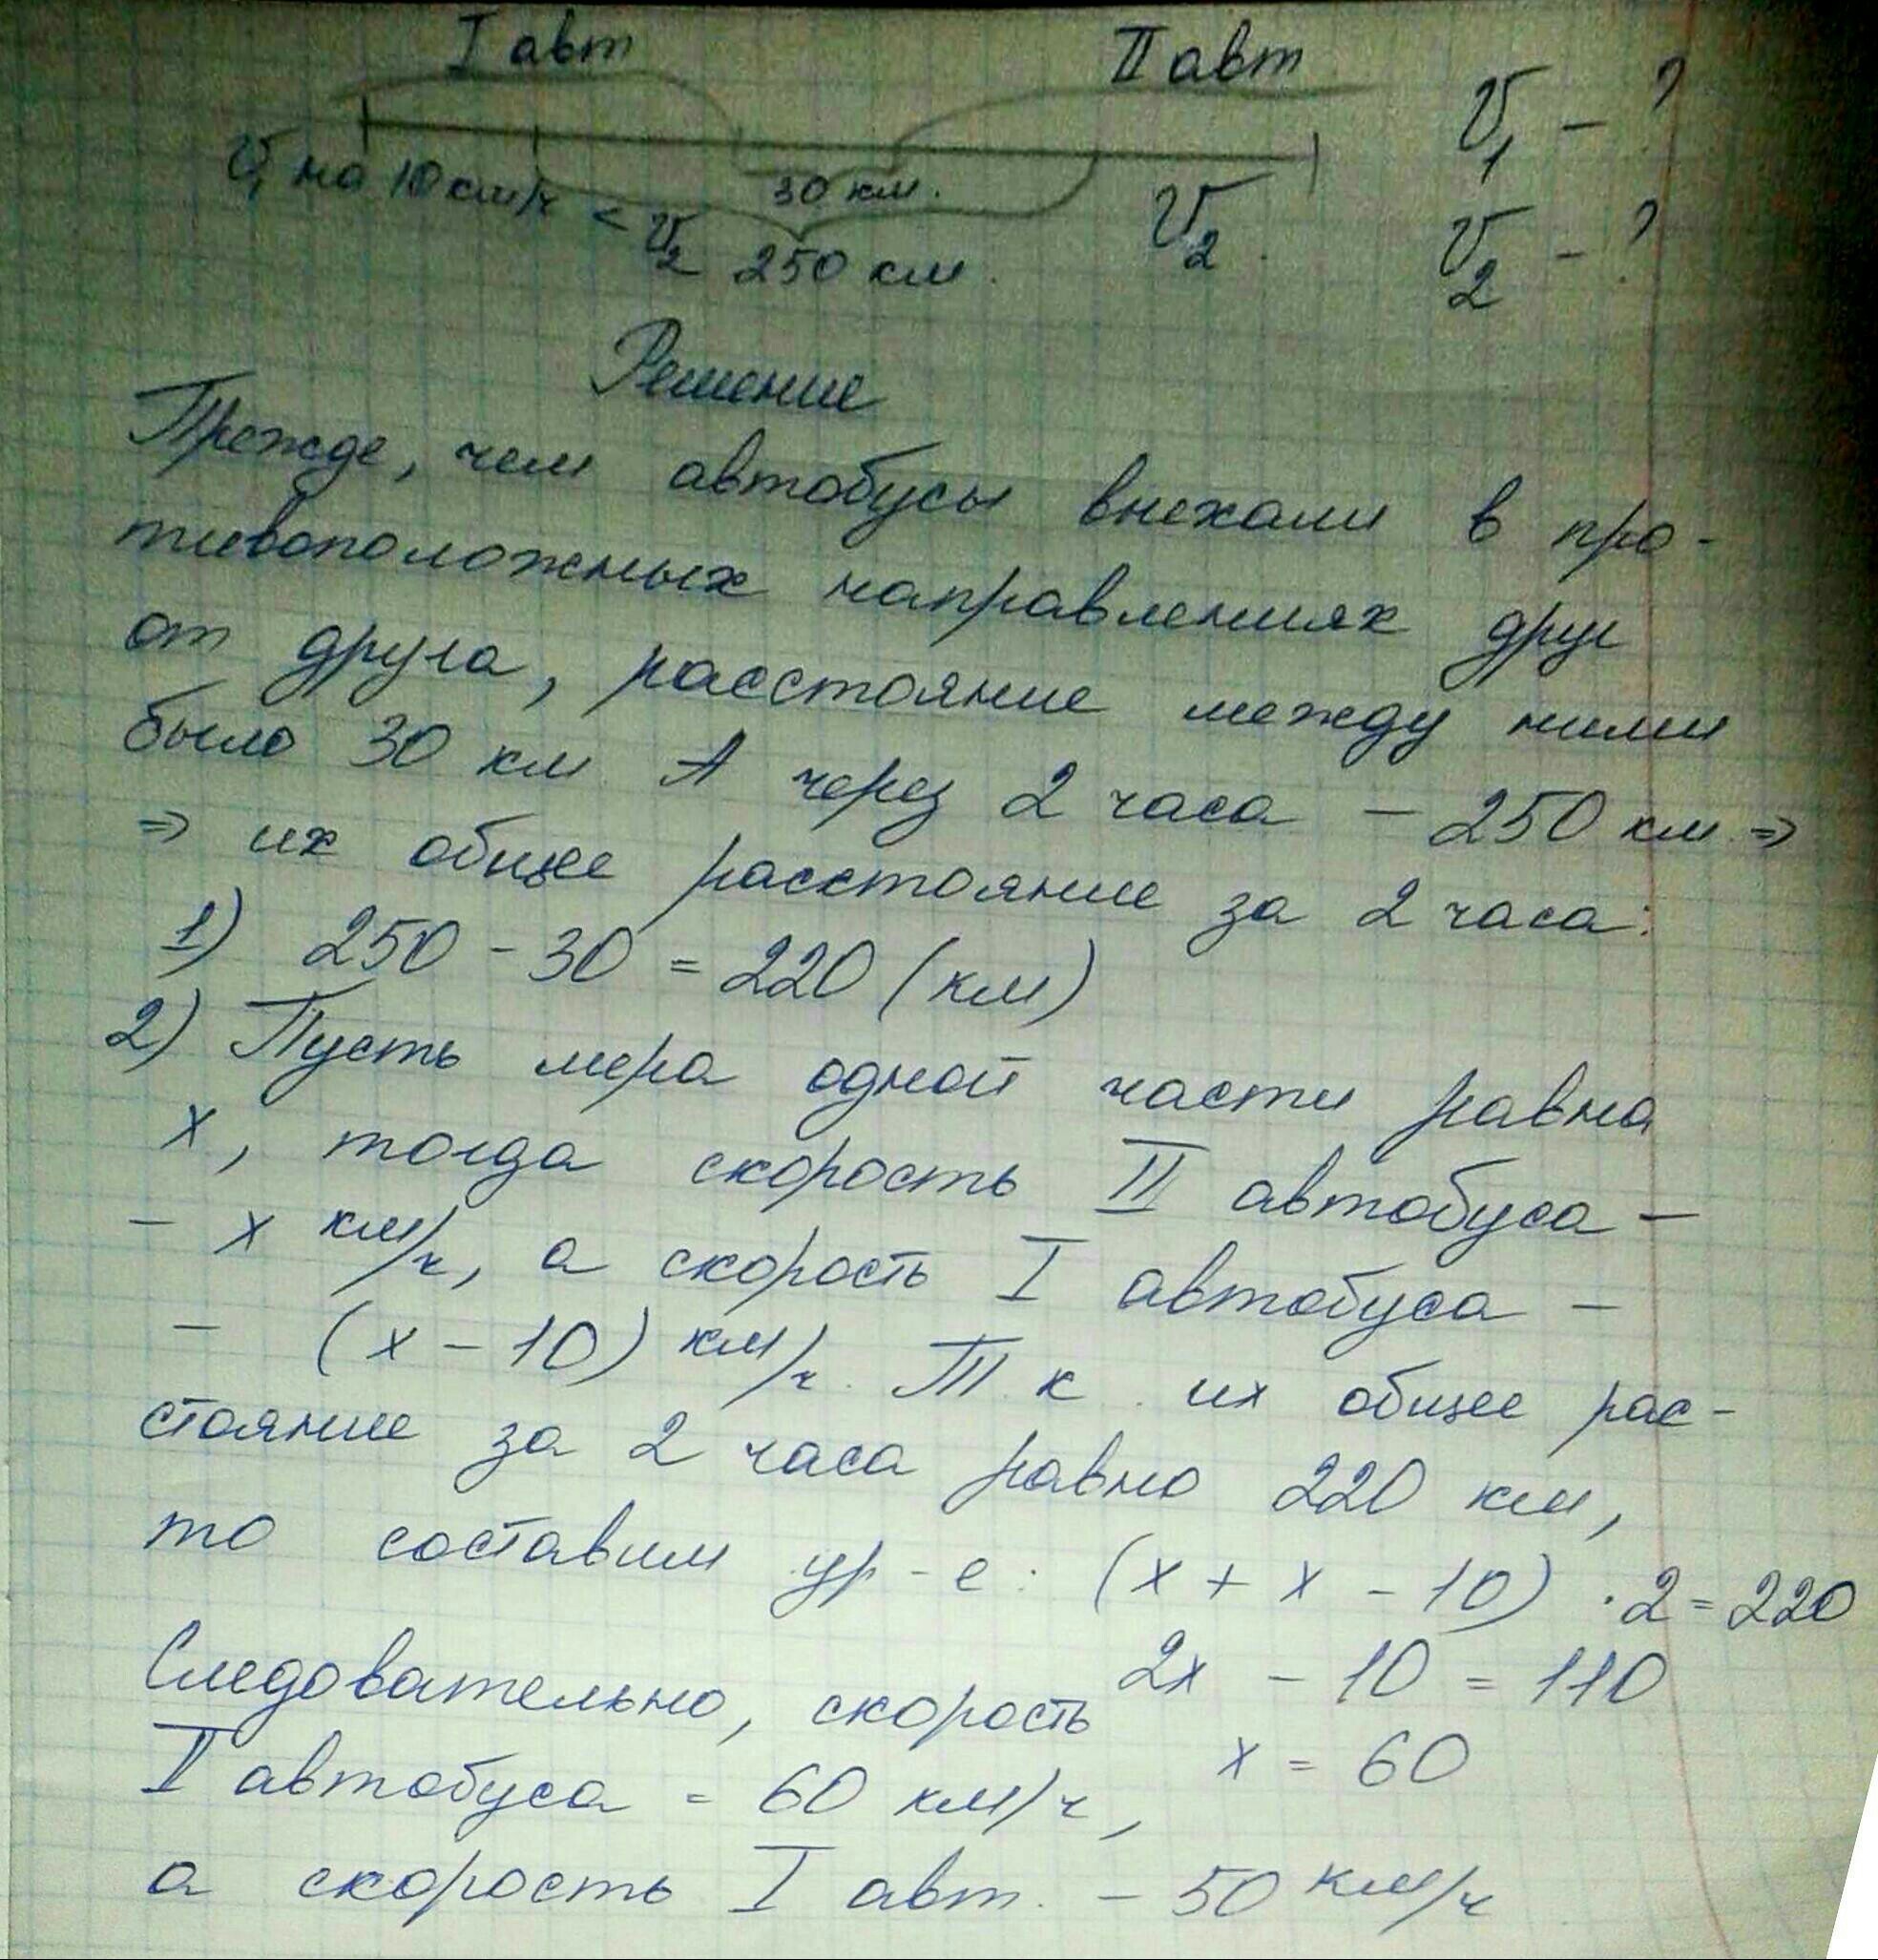 I авт II авт
V₁ - ?
V₁ на 10 км/ч < V₂ 30 км. V₂
250 км. V₂ - ?
Решение
Прежде, чем автобусы выехали в про-
тивоположных направлениях друг
от друга, расстояние между ними
было 30 км А через 2 часа - 250 км =>
=> их общее расстояние за 2 часа:
1) 250 - 30 = 220 (км)
2) Пусть мера одной части равна
x, тогда скорость II автобуса -
- x км/ч, а скорость I автобуса -
- (x - 10) км/ч. Т.к. их общее рас-
стояние за 2 часа равно 220 км,
то составим ур-е: (x + x - 10) · 2 = 220
2x - 10 = 110
x = 60
Следовательно, скорость
II автобуса = 60 км/ч,
а скорость I авт. - 50 км/ч